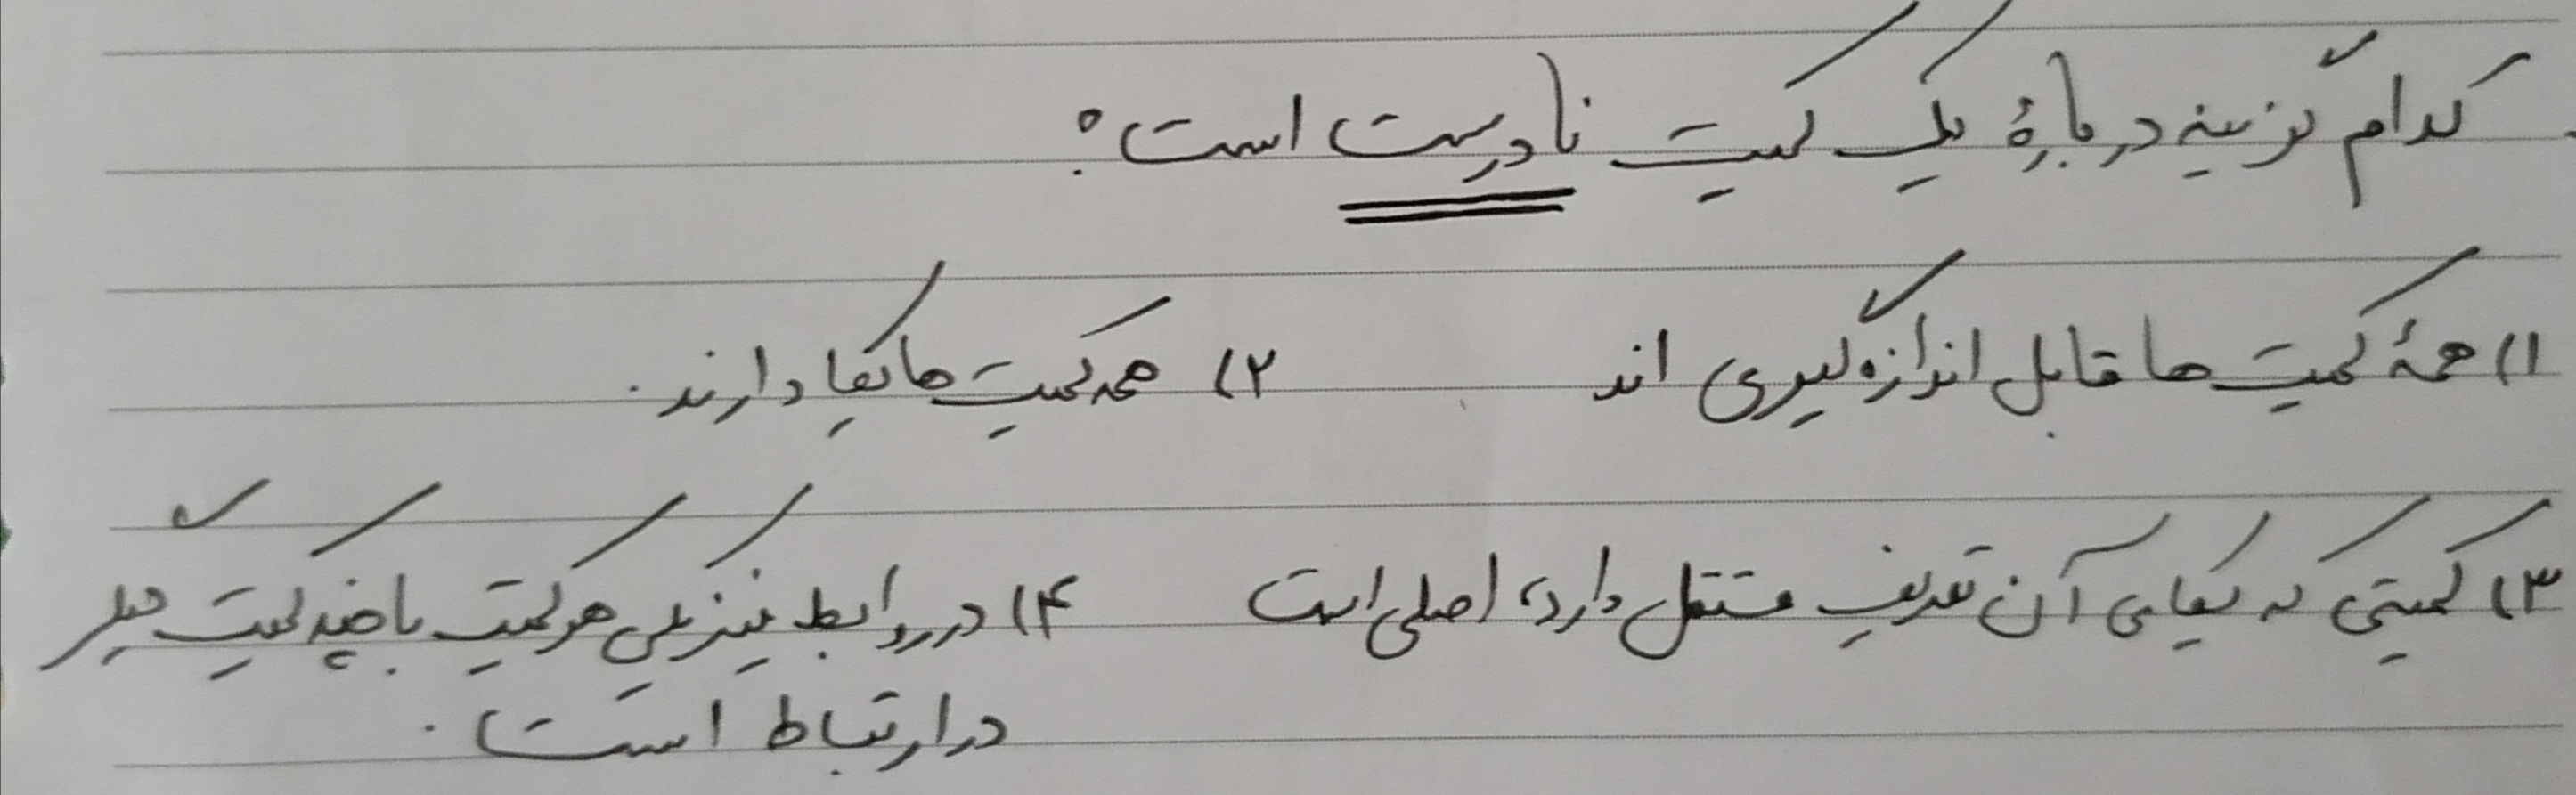 کدام گزینه دربارهٔ یک کمیت نادرست است؟
۱) همهٔ کمیت ها قابل اندازه گیری اند ۲) همه کمیت ها یکا دارند.
۳) کمیتی که یکای آن تعریف مستقل دارد، اصلی است ۴) در روابط فیزیکی هر کمیت با چند کمیت دیگر
در ارتباط است.